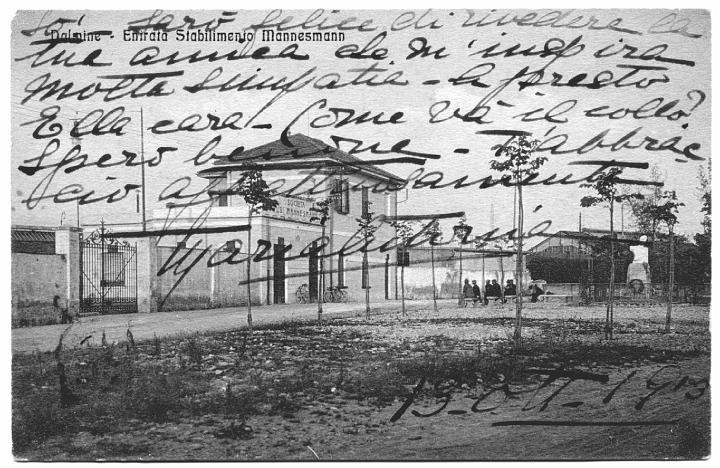 Dalmine - Entrata Stabilimento Mannesmann
So'. Sarò felice di rivedere la
tua amica che m'inspira
molta simpatia - a presto
Ella cara - Come và il collo?
Spero benone - T'abbrac
cio affettuosamente
SOCIETÀ
TUBI MANNESMANN
13 - Ott - 1913